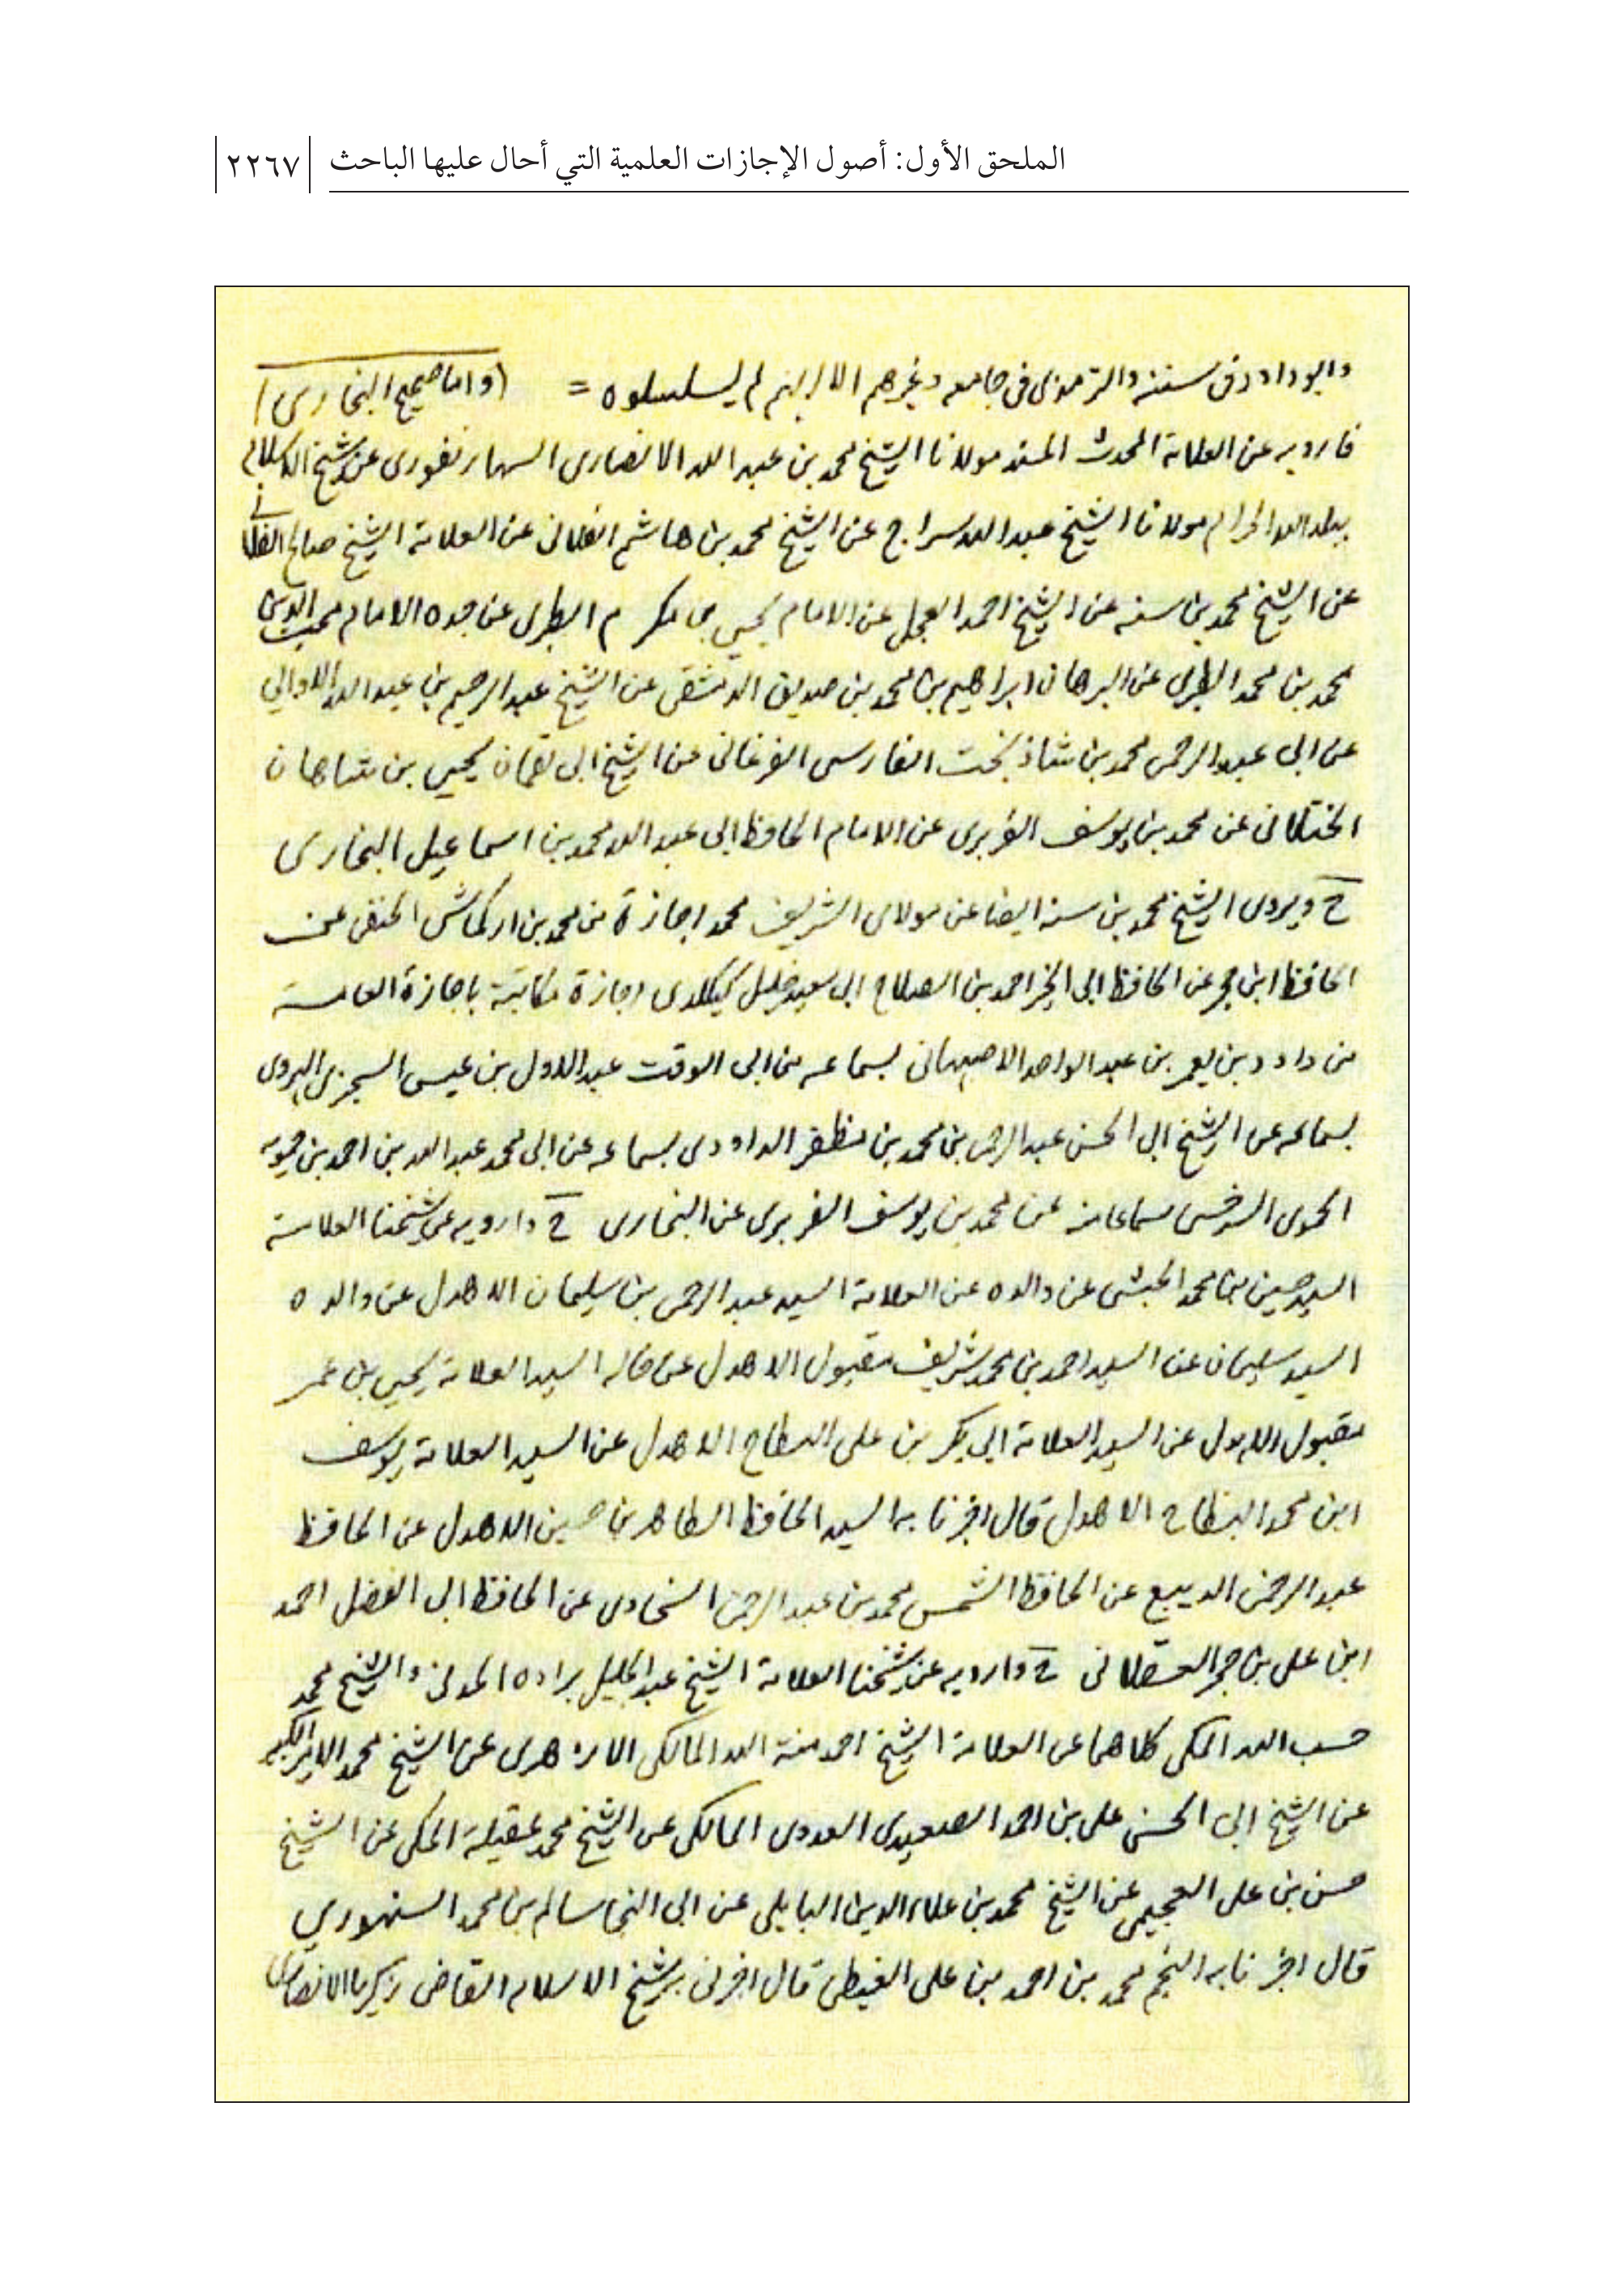 الملحق الأول: أصول الإجازات العلمية التي أحال عليها الباحث
٢٢٦٧
وابو داود في سننه والترمذي في جامعه وغيرهم الا انهم لم يسلسلوه = (واما صحيح البخاري)
فارويه عن العلامة المحدث المسند مولانا الشيخ محمد بن عبد الله الانصاري السهارنفوري عن شيخ الاسلام
ببلد الله الحرام مولانا الشيخ عبد الله سراج عن الشيخ محمد بن هاشم الفلاني عن العلامة الشيخ صالح الفلاني
عن الشيخ محمد بن سنه عن الشيخ احمد العجل عن الامام يحيى بن مكرم الطبري عن جده الامام محب الدين
محمد بن محمد الطبري عن البرهان ابراهيم بن محمد بن صديق الدمشقي عن الشيخ عبد الرحيم بن عبد الله الاوالي
عن ابي عبد الرحمن محمد بن شاذ بخت الفارسي الفرغاني عن الشيخ ابي لقمان يحيى بن شاهان
الختلاني عن محمد بن يوسف الفربري عن الامام الحافظ ابي عبد الله محمد بن اسماعيل البخاري
ح ويروي الشيخ محمد بن سنه ايضا عن مولاي الشريف محمد اجازة عن محمد بن اركماش الحنفي عن
الحافظ ابن حجر عن الحافظ ابي الخير احمد بن الصلاح ابي سعيد خليل كيكلدي اجازة مكاتبة باجازة العامة
من داود بن يعمر بن عبد الواحد الاصبهاني بسماعه من ابي الوقت عبد الاول بن عيسى السجزي الهروي
بسماعه عن الشيخ ابي الحسن عبد الرحمن بن محمد بن مظفر الداودي بسماعه عن ابي محمد عبد الله بن احمد بن حمويه
الحموي السرخسي سماعا عن محمد بن يوسف الفربري عن البخاري ح وارويه عن شيخنا العلامة
السيد حسين بن محمد الحبشي عن والده عن العلامة السيد عبد الرحمن بن سليمان الاهدل عن والده
السيد سليمان عن السيد احمد بن محمد شريف مقبول الاهدل عن خاله السيد العلامة يحيى بن عمر
مقبول الاهدل عن السيد العلامة ابي بكر بن علي البطاح الاهدل عن السيد العلامة يوسف
ابن محمد البطاح الاهدل قال اخبرنا به السيد الحافظ الطاهر بن حسين الاهدل عن الحافظ
عبد الرحمن الديبع عن الحافظ الشمس محمد بن عبد الرحمن السخاوي عن الحافظ ابي الفضل احمد
ابن علي بن حجر العسقلاني ح وارويه عن شيخنا العلامة الشيخ عبد الجليل براده المدني والشيخ محمد
حسب الله المكي كلاهما عن العلامة الشيخ احمد منة الله المالكي الازهري عن الشيخ محمد الامير الكبير
عن الشيخ ابي الحسن علي بن احمد الصعيدي العدوي المالكي عن الشيخ محمد عقيلة المكي عن الشيخ
حسن بن علي العجيمي عن الشيخ محمد بن علاء الدين البابلي عن ابي النجا سالم بن محمد السنهوري
قال اخبرنا به النجم محمد بن احمد بن علي الغيطي قال اخبرني به شيخ الاسلام القاضي زكريا الانصاري